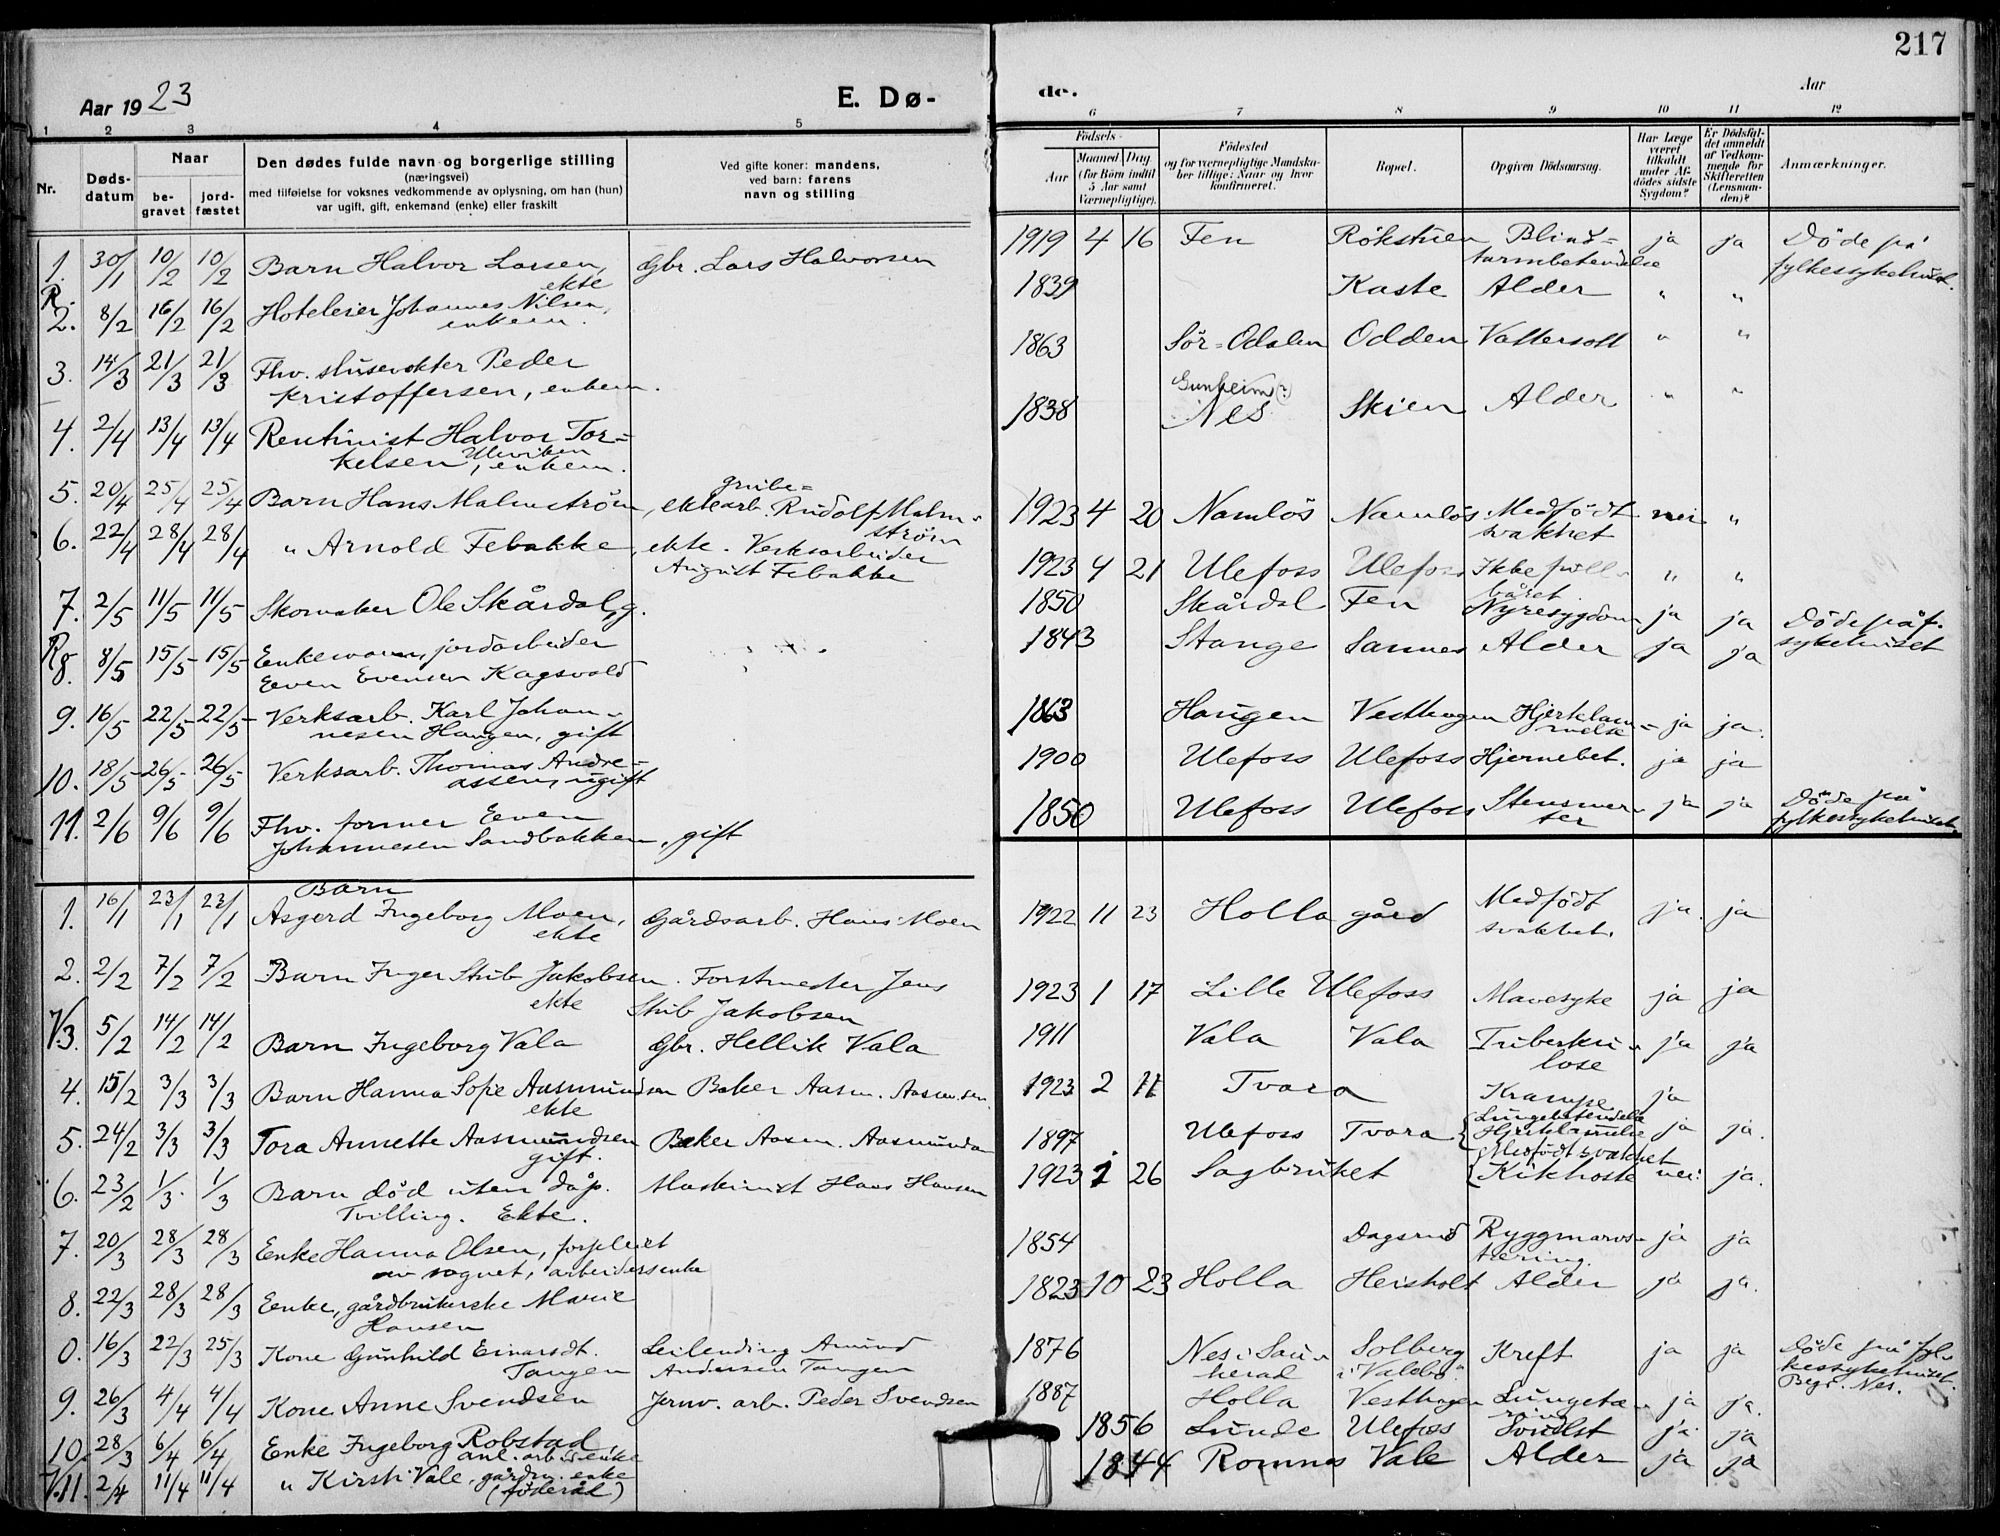 217
Aar 1923
E. Dø-
de.
Aar
1 2 3 4 5
6 7 8 9 10 11 12
Nr.
Døds-
datum
Naar
be-
gravet
jord-
fæstet
Den dødes fulde navn og borgerlige stilling
(næringsvei)
med tilføielse for voksnes vedkommende av oplysning, om han (hun)
var ugift, gift, enkemand (enke) eller fraskilt
Ved gifte koner: mandens,
ved barn: farens
navn og stilling
Fødsels-
Aar
Maaned Dag
(for Børn indtil
5 Aar samt
Værnepligtige).
Fødested
og for værnepligtige Mandska-
ber tillige: Naar og hvor
konfirmeret.
Bopæl.
Opgiven Dødsaarsag.
Har Læge
været
tilkaldt
under Af-
dødes sidste
Sygdom?
Er Dødsfal-
det anmeldt
af Vedkom-
mende for
Skifteretten
(Lensman-
den)?
Anmærkninger.
1. 30/1 10/2 10/2 Barn Halvor Larsen, Gbr. Lars Halvorsen 1919 4 16 Fen Rökstuen Blind- ja ja Döde på
ekte tarmbetendelse fylkessykehuset.
R. 2. 8/2 16/2 16/2 Hoteleier Johannes Nilsen, 1839 Kaste Alder " "
enkem.
3. 14/3 21/3 21/3 Fhv. slusevokter Peder 1863 Sör-Odalen Odden Vattersott " "
Kristoffersen, enkem.
4. 2/4 13/4 13/4 Rentinist Halvor Tor- 1838 Gunheim(?) Nes Skien Alder " "
kelsen Ulviken, enkem.
5. 20/4 25/4 25/4 Barn Hans Malmström, ekte grube-arb. Rudolf Malm- 1923 4 20 Namlös Namlös Medfödt nei "
ström svakhet
6. 22/4 28/4 28/4 " Arnold Febakke, ekte. Verksarbeider 1923 4 21 Ulefoss Ulefoss Ikke full- " "
August Febakke båret.
7. 2/5 11/5 11/5 Skomaker Ole Skårdal, g. 1850 Skårdal Fen Nyresygdom ja ja
R 8. 8/5 15/5 15/5 Enkemann, jordarbeider 1843 Stange Sannes Alder ja ja Döde på f.
Even Evensen Kagsvold sykehuset
9. 16/5 22/5 22/5 Verksarb. Karl Johan- 1863 Haugen Vesthagen Hjerklam- ja ja.
nesen Haugen, gift melse
10. 18/5 26/5 26/5 Verksarb. Thomas Andre- 1900 Ulefoss Ulefoss Hjernebet. ja ja
assen, ugift
11. 2/6 9/6 9/6 Fhv. former Even 1850 Ulefoss Ulefoss ja ja Döde på
Johannesen Sandbakken, gift fylkessykehuset
1. 16/1 23/1 23/1 Barn
Asgerd Ingeborg Moen, Gårdsarb. Hans Moen 1922 11 23 Holla gård Medfödt ja. ja
ekte svakhet.
2. 2/2 7/2 7/2 Barn Inger Stub Jakobsen. Forstmester Jens 1923 1 17 Lille Ulefoss Mavesyke ja ja
ekte Stub Jakobsen
V. 3. 5/2 14/2 14/2 Barn Ingeborg Vala Gbr. Hellik Vala 1911 Vala Vala Tuberku- ja ja
lose
4. 15/2 3/3 3/3 Barn Hanna Sofie Aasmundsen Baker Aasm. Aasm.sen. 1923 2 11 Tvara Krampe ja
ekte
5. 24/2 3/3 3/3 Tora Annette Aasmundsen Baker Aasm. Aasmundsen 1897 Ulefoss Tvara Lungebetendelse Hjerklammelse ja ja.
gift.
6. 23/2 1/3. 1/3 Barn död uten dåp. Maskinist Hans Hansen 1923 1 26 Sagbruket Medfödt svakhet Kikhoste nei: ja.
Tvilling. Ekte.
7. 20/3 28/3 28/3 Enke Hanna Olsen, forpleiet 1854 Dagsrud Ryggmarvs- ja ja
av sognet, arbeidersenke tæring.
8. 22/3 28/3 28/3 Enke, gårdbrukerske Marie 1823 10 23 Holla Heisholt Alder ja ja.
Hansen
0. 16/3 22/3 25/3 Kone Gunhild Einarsdt. Leilending Amund 1876 Nes i Sau- Solberg Kreft ja ja Döde på fyl-
Tangen Andersen Tangen herad i Valebö kessykehuset.
Begr. Nes.
9. 26/3 4/4 4/4 Kone Anne Svendsen Jernv. arb. Peder Svendsen 1887 Holla Vesthagen Lungetæ- ja ja.
ring
10. 28/3 6/4 6/4 Enke Ingeborg Robstad 1856 Lunde Ulefoss Svulst ja ja
anl. arb.s enke
V. 11. 2/4 11/4 11/4 " Kirsti Vale, gårdm. enke 1844 Romnes Vale Alder ja ja
(föderåd)